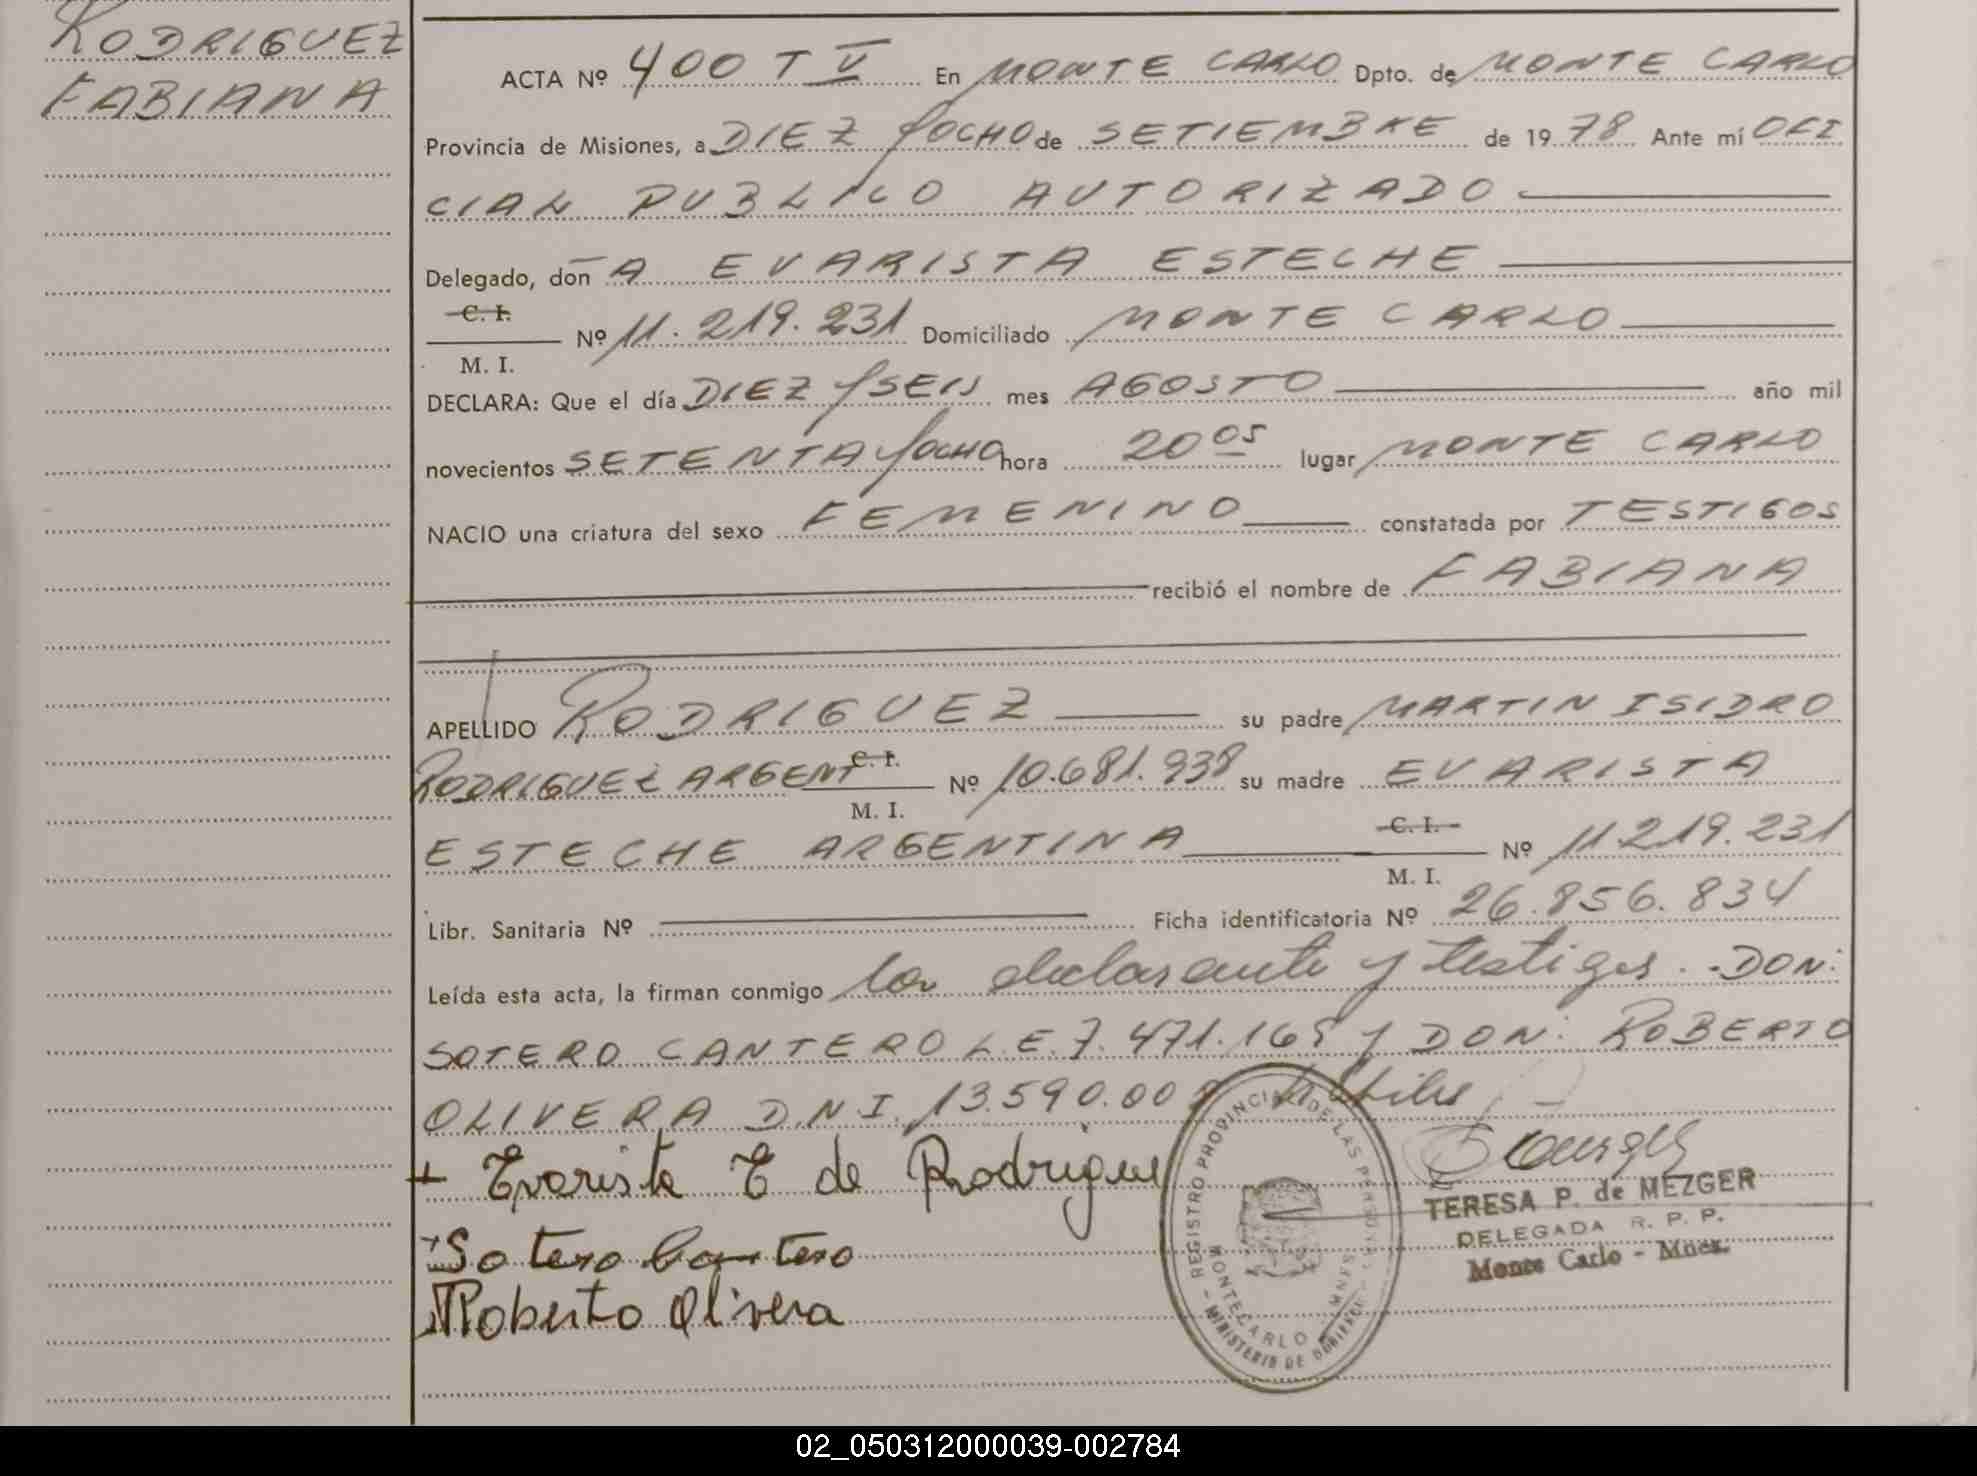 RODRIGUEZ
FABIANA
ACTA Nº 400 T V En MONTE CARLO Dpto. de MONTE CARLO
Provincia de Misiones, a DIEZ YOCHO de SETIEMBRE de 1978 Ante mí OFI
CIAL PUBLICO AUTORIZADO
Delegado, don A EVARISTA ESTECHE
C. I.
M. I.
Nº 11.219.231 Domiciliado MONTE CARLO
DECLARA: Que el día DIEZ YSEIS mes AGOSTO año mil
novecientos SETENTA YOCHO hora 20 05 lugar MONTE CARLO
NACIO una criatura del sexo FEMENINO constatada por TESTIGOS
recibió el nombre de FABIANA
APELLIDO RODRIGUEZ su padre MARTIN ISIDRO
RODRIGUEZ ARGENT C. I. Nº 10.681.938 su madre EVARISTA
M. I.
ESTECHE ARGENTINA C. I. Nº 11.219.231
M. I.
Libr. Sanitaria Nº Ficha identificatoria Nº 26.856.834
Leída esta acta, la firman conmigo la declarante y testigos. -DON:
SOTERO CANTERO L.E. 7.471.165 y DON: ROBERTO
OLIVERA D.N.I. 13.590.00 hábiles
+ Evarista E de Rodriguez
Sotero Cantero
Roberto Olivera
REGISTRO PROVINCIAL DE LAS PERSONAS
MONTECARLO MNES
MINISTERIO DE GOBIERNO
TERESA P. de MEZGER
DELEGADA R. P. P.
Monte Carlo - Mnes.
02_050312000039-002784